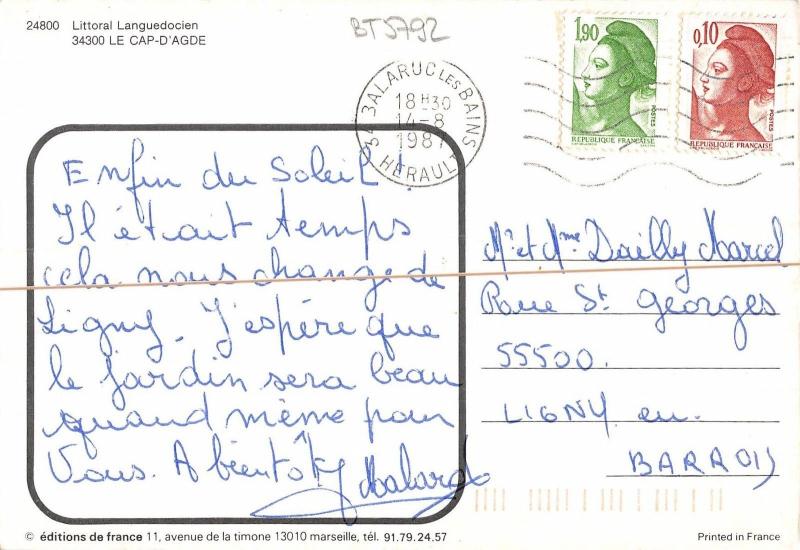 24800 Littoral Languedocien
34300 LE CAP-D'AGDE
BTJ792
34 BALARUC LES BAINS
18 H30
14-8
1987
HERAULT
1,90
POSTES
REPUBLIQUE FRANÇAISE
0,10
POSTES
REPUBLIQUE FRANÇAISE
Enfin du Soleil!
Il était temps
cela nous change de
Ligny. J'espère que
le jardin sera beau
quand même pour
Vous. A bientôt
Mr et Mme Dailly Marcel
Rue St Georges
55500.
LIGNY en.
BARROIS
© éditions de france 11, avenue de la timone 13010 marseille, tél. 91.79.24.57
Printed in France